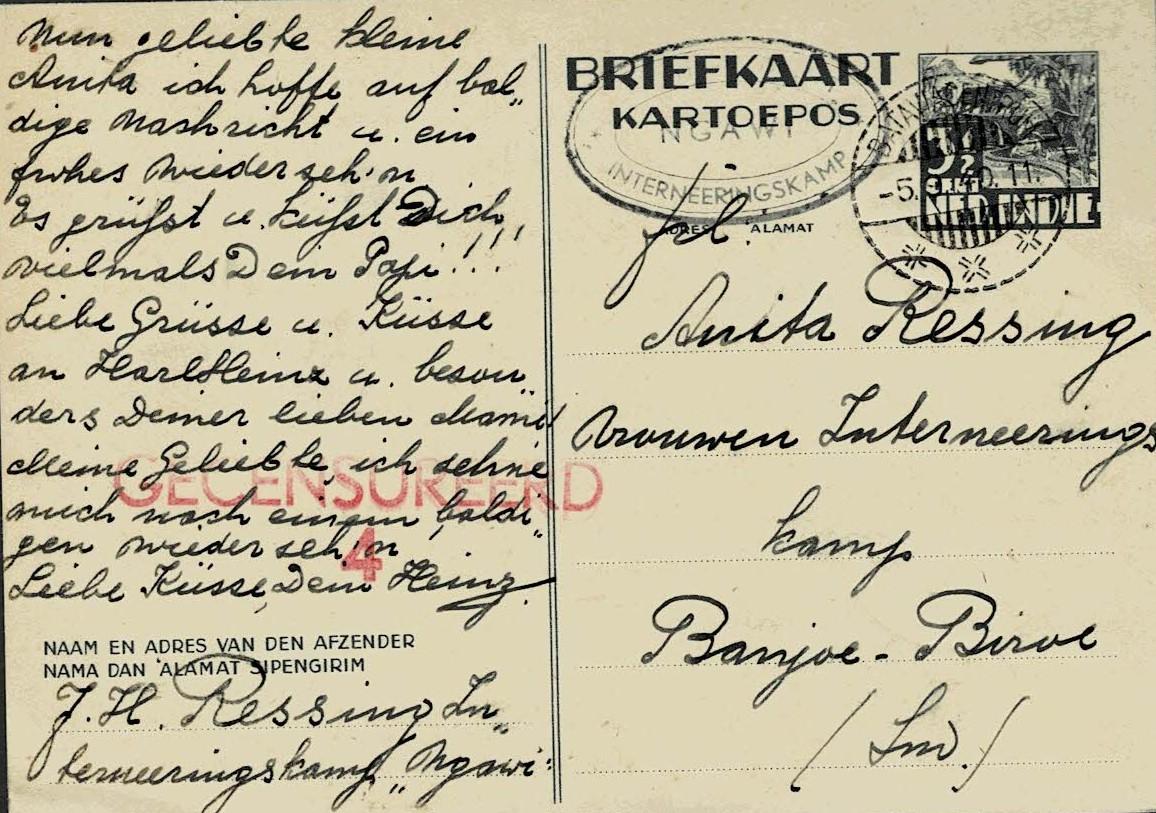 Nun geliebte kleine
Anita ich hoffe auf bal„
dige Nachricht u. ein
frohes wiederseh'n
Es grüßt u. küßt Dich
vielmals Dein Papi!!!
Liebe Grüsse u. Küsse
an KarlHeinz u. beson„
ders Deiner lieben Mami
Meine Geliebte, ich sehne
mich nach einem baldi„
gen wiederseh'n
Liebe Küsse, Dein Heinz
GECENSUREERD
4
NAAM EN ADRES VAN DEN AFZENDER
NAMA DAN ʿALAMAT SIPENGIRIM
J. H. Ressing In„
terneeringskamp „Ngawi
BRIEFKAART
KARTOEPOS
NGAWI
INTERNEERINGSKAMP
ADRES ALAMAT
frl.
Anita Ressing
Vrouwen Interneerings
kamp
Banjoe-Biroe
3½
-5. 40. 11.